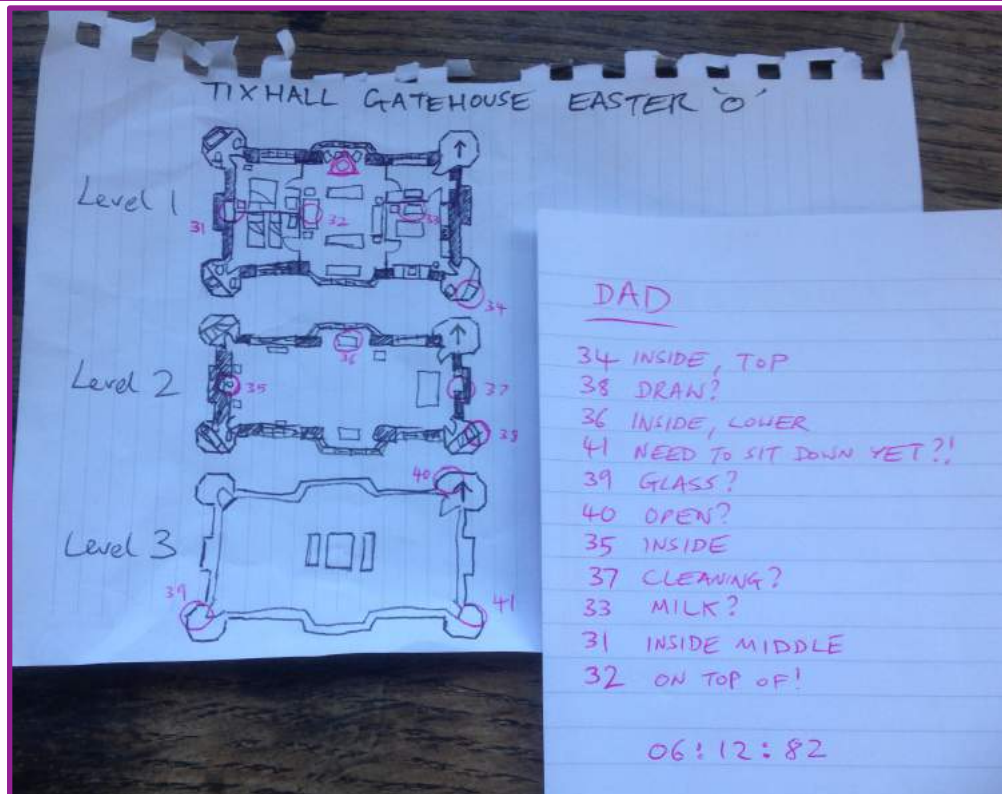 TIXHALL GATEHOUSE EASTER 'O'
Level 1
31
32
33
34
Level 2
35
36
37
38
Level 3
39
40
41
DAD
34 INSIDE, TOP
38 DRAW?
36 INSIDE, LOWER
41 NEED TO SIT DOWN YET?!
39 GLASS?
40 OPEN?
35 INSIDE
37 CLEANING?
33 MILK?
31 INSIDE MIDDLE
32 ON TOP OF!
06:12:82